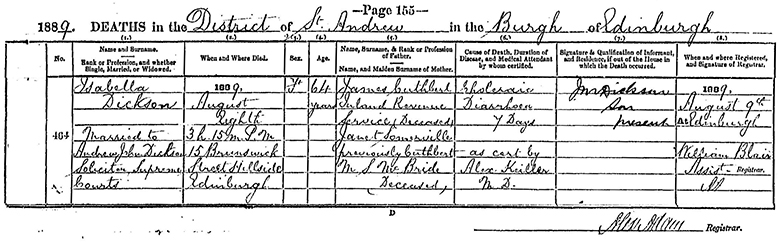 —Page 155—
1889. DEATHS in the District of St. Andrew in the Burgh of Edinburgh
(1.) (2.) (3.) (4.) (5.) (6.) (7.) (8.)
No.
Name and Surname.
Rank or Profession, and whether Single, Married, or Widowed.
When and Where Died.
Sex.
Age.
Name, Surname, & Rank or Profession of Father.
Name, and Maiden Surname of Mother.
Cause of Death, Duration of Disease, and Medical Attendant by whom certified.
Signature & Qualification of Informant, and Residence, if out of the House in which the Death occurred.
When and where Registered, and Signature of Registrar.
464
Isabella
Dickson
Married to
Andrew John Dickson
Solicitor, Supreme
Courts
1889,
August
Eighth
3 h. 15 m. P.M.
15 Brunswick
Street Hillside
Edinburgh
F
64
years
James Cuthbert
Inland Revenue
Service (Deceased)
Janet Somerville
previously Cuthbert
M.S. McBride
(Deceased)
Choleraic
Diarrhoea
7 Days
as cert by
Alex. Keiller
M.D.
Dickson
Son
present
1889.
August 9th
At Edinburgh
William Blair
Assist- Registrar.
D
Registrar.